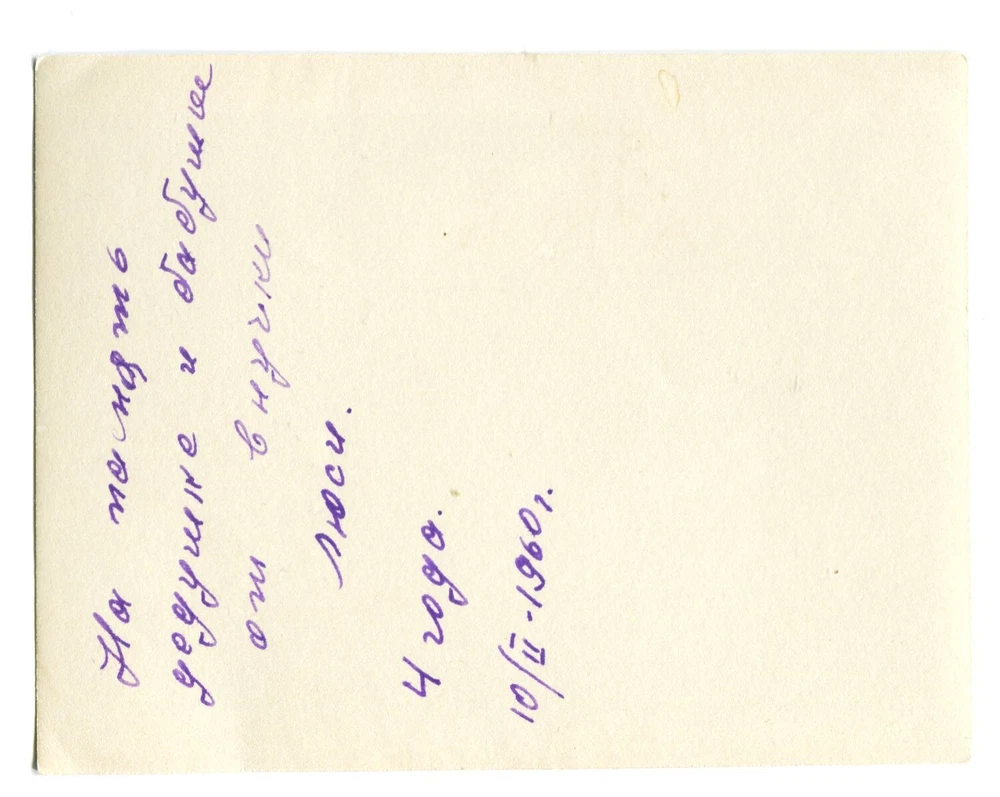 На память
дедушке и бабушке
от внучки
Люси.
4 года.
10/II-1960г.